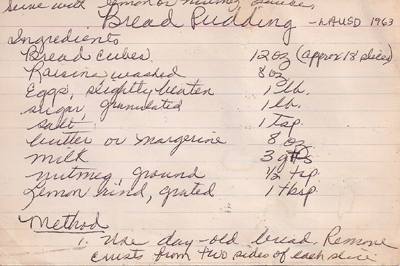 Serve with lemon or nutmeg sauce.
Bread Pudding - LAUSD 1963
Ingredients
Bread cubes 12 oz (approx 13 slices)
Raisins washed 8 oz
Eggs, slightly beaten 1 lb.
sugar, granulated 1 lb.
salt 1 tsp.
butter or margerine 8 oz
milk 3 qts
nutmeg, ground 1/2 tsp.
Lemon rind, grated 1 tbsp.
Method
1. Use day-old bread. Remove
crusts from two sides of each slice